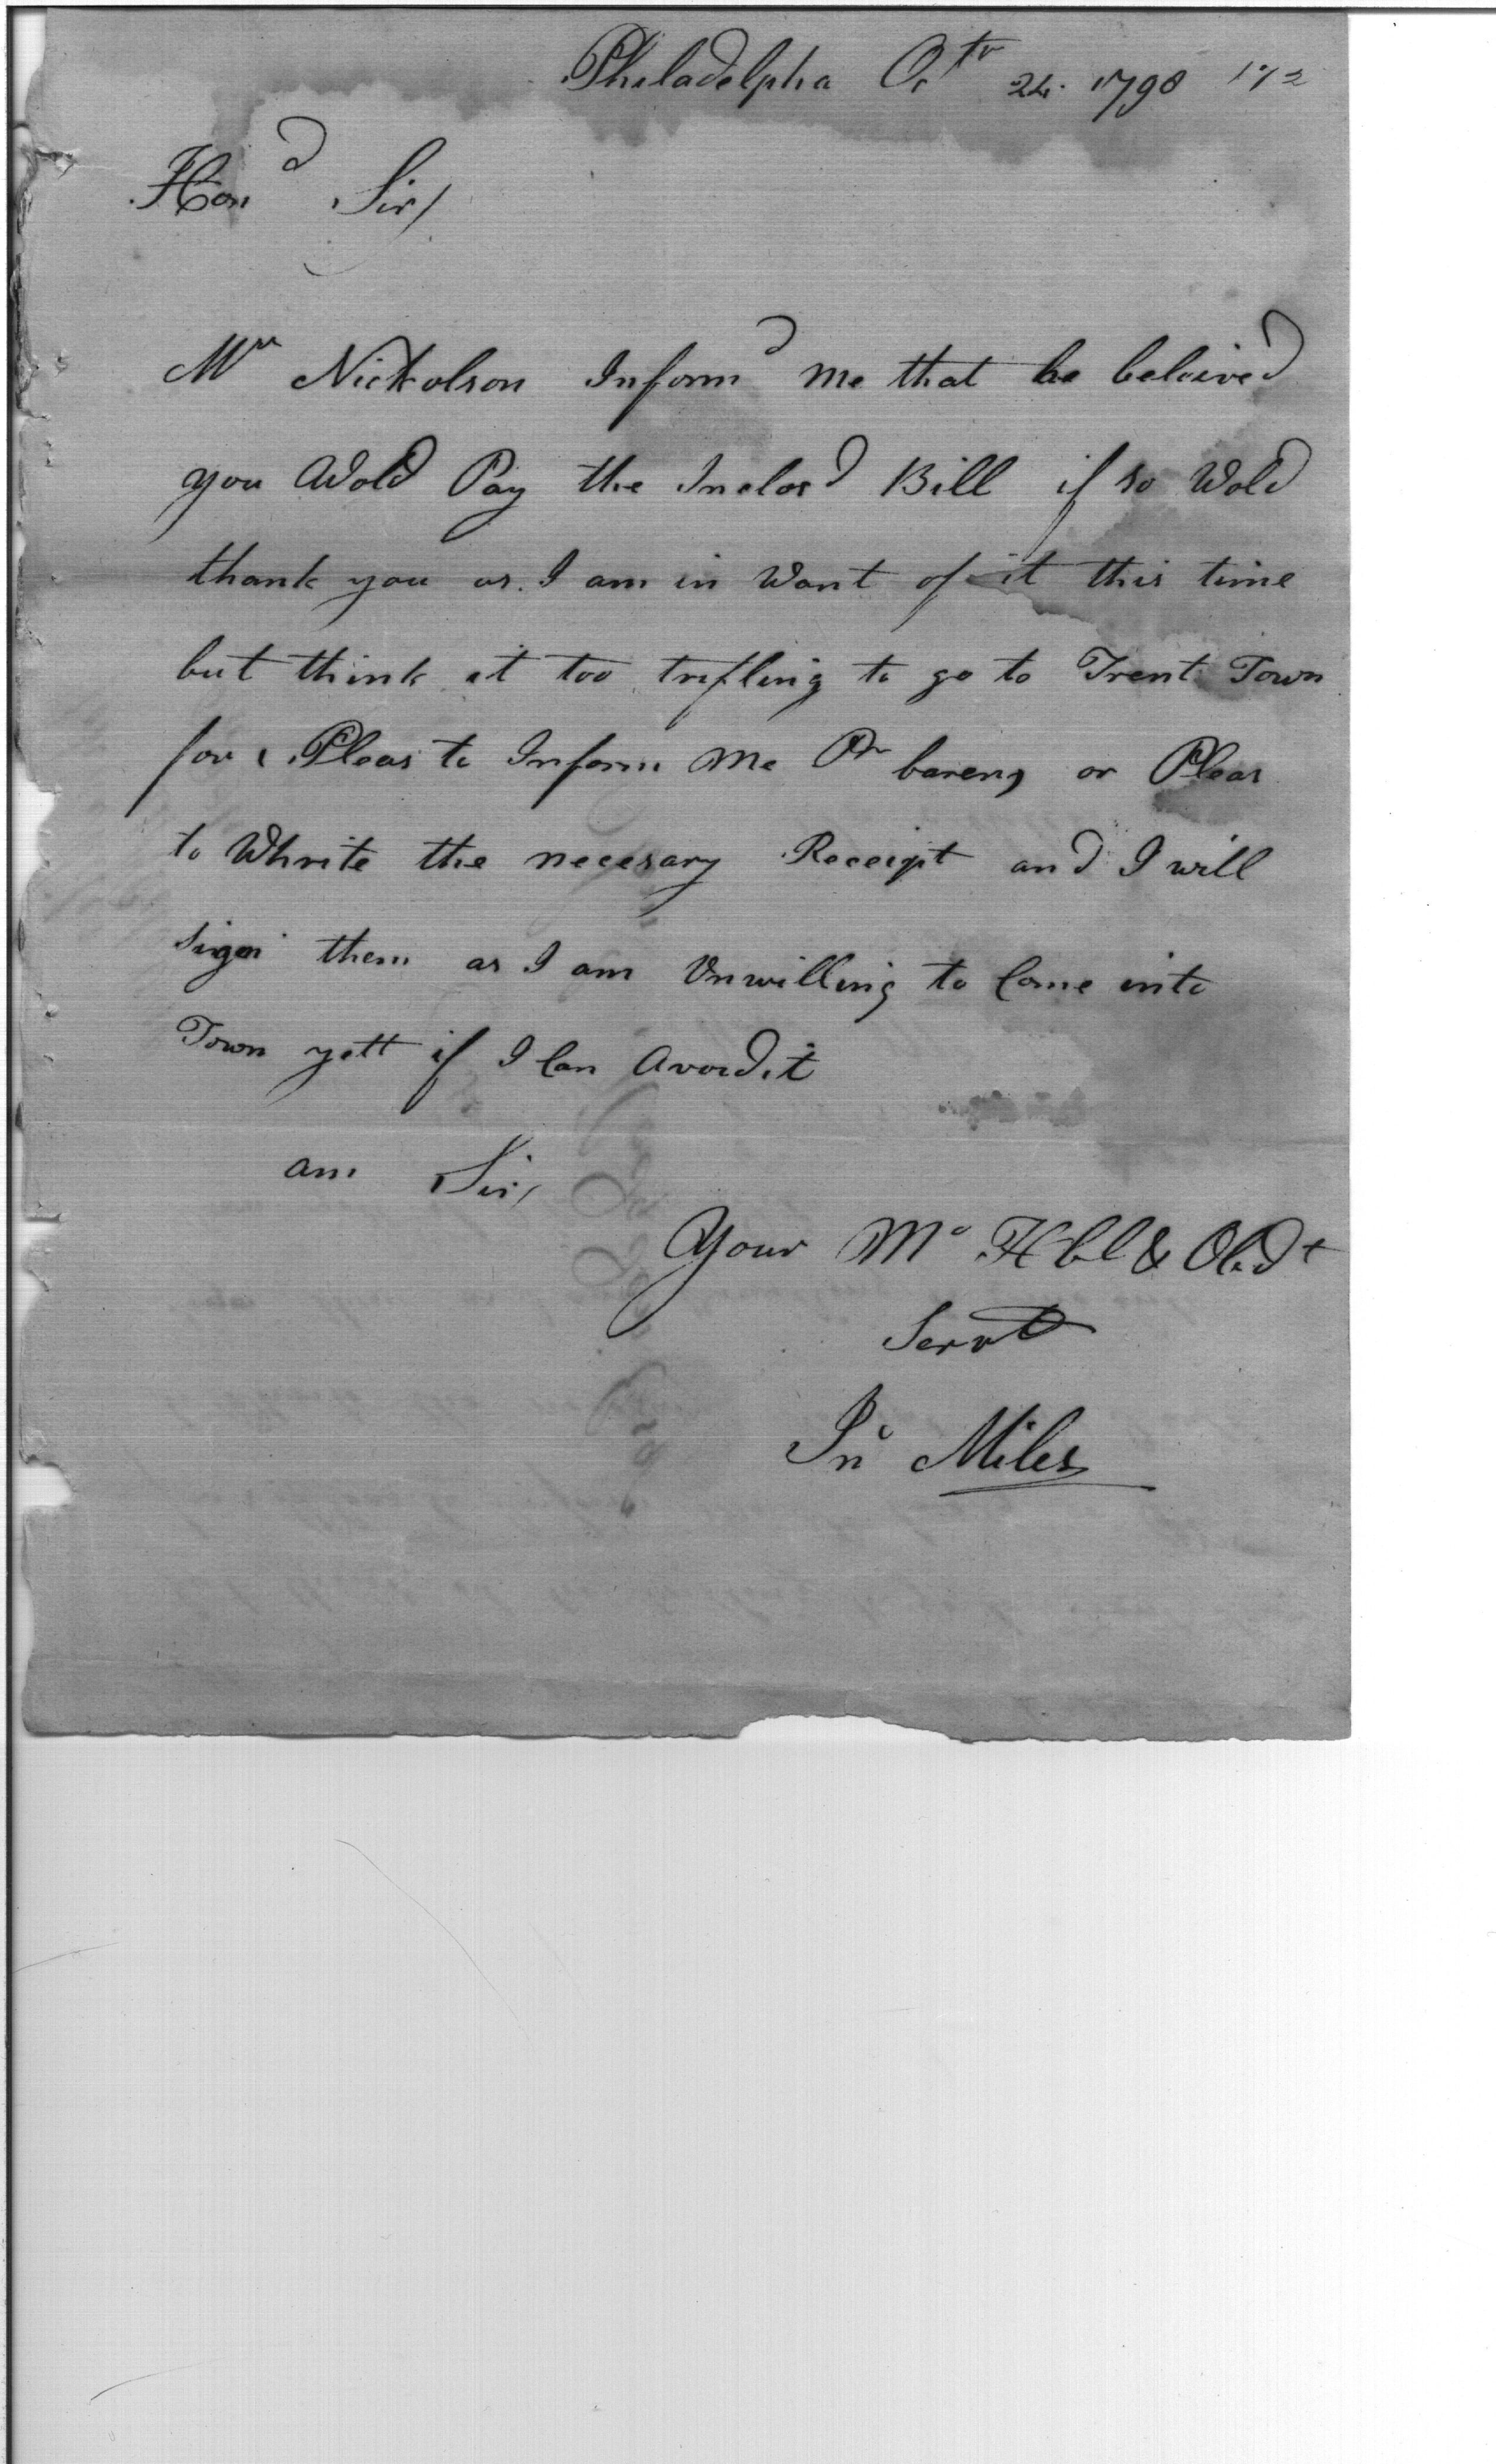 Philadelpha Octr 24. 1798 172
Hond Sir/
Mr Nickolson Informd me that he beleived
you Wold Pay the Inclosd Bill if so Wold
thank you as I am in Want of it this time
but think it too trifling to go to Trent Town
for Pleas to Inform me Pr barer or Pleas
to Whrite the necesary Receipt and I will
sign them as I am Unwilling to Come into
Town yett if I Can Avoid it
am Sir/
Your Mo Hbl & Obdt
Servt
Jno Miles